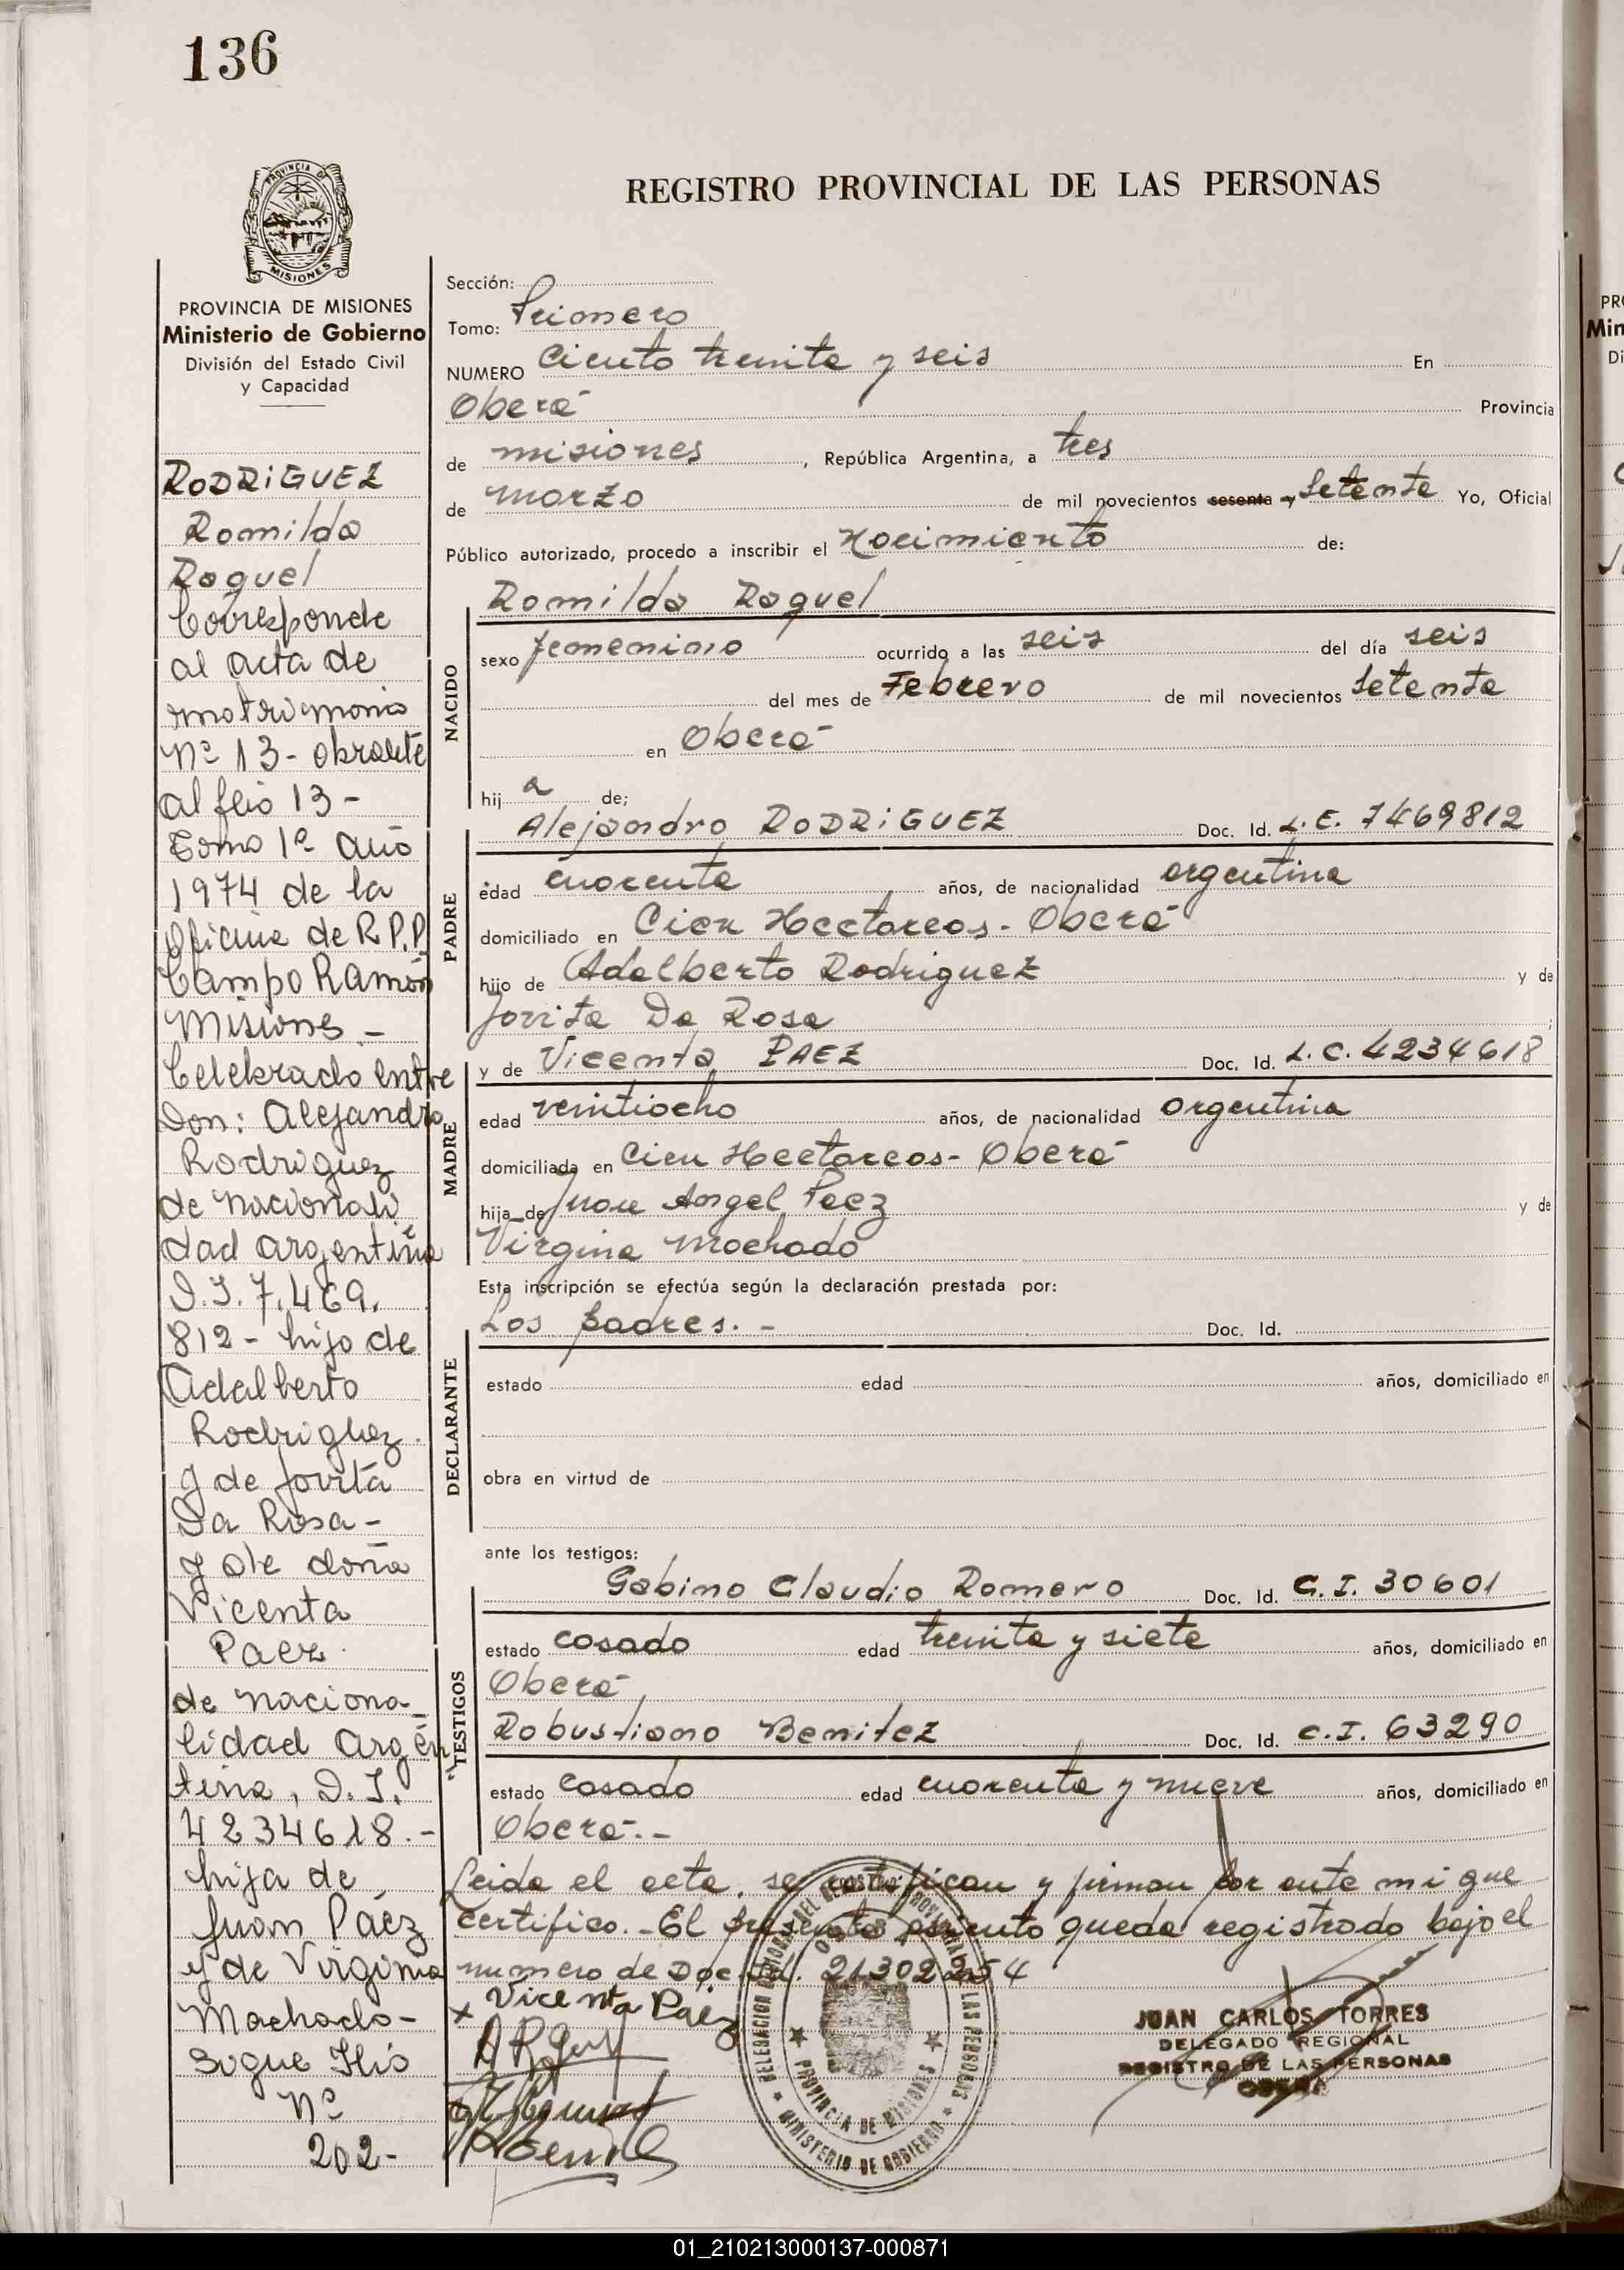 136
PROVINCIA DE
MISIONES
PROVINCIA DE MISIONES
Ministerio de Gobierno
División del Estado Civil
y Capacidad
RODRIGUEZ
Romilda
Raquel
Corresponde
al acta de
matrimonio
Nº 13 - obrante
al folio 13 -
Tomo 1º año
1974 de la
Oficina de R.P.P.
Campo Ramón
Misiones -
Celebrado entre
Don: Alejandro
Rodriguez
de nacionali
dad argentina
D.I. 7.469.
812 - hijo de
Adalberto
Rodriguez
y de Jovita
Da Rosa -
y de doña
Vicenta
Paez
de naciona-
lidad argen
tina, D.I.
4234618.-
hija de
Juan Paez
y de Virginia
Machado -
Nº
202-
REGISTRO PROVINCIAL DE LAS PERSONAS
Sección:
Tomo: Primero
NUMERO Ciento treinta y seis En
Oberá Provincia
de misiones, República Argentina, a tres
de marzo de mil novecientos sesenta y Setenta Yo, Oficial
Público autorizado, procedo a inscribir el Nacimiento de:
Romilda Raquel
NACIDO
sexo femenino ocurrido a las seis del día seis
del mes de Febrero de mil novecientos Setenta
en Oberá
hija de;
Alejandro RODRIGUEZ Doc. Id. L.E. 7469812
PADRE
edad cuarenta años, de nacionalidad argentina
domiciliado en Cien Hectareas - Oberá
hijo de Adalberto Rodriguez y de
Jovita Da Rosa;
y de Vicenta PAEZ Doc. Id. L.C. 4234618
MADRE
edad veintiocho años, de nacionalidad argentina
domiciliada en Cien Hectareas - Oberá
hija de Juan Angel Paez y de
Virgina Machado
Esta inscripción se efectúa según la declaración prestada por:
Los padres. - Doc. Id.
DECLARANTE
estado edad años, domiciliado en
obra en virtud de
ante los testigos:
Gabino Claudio Romero Doc. Id. C.I. 30601
TESTIGOS
estado casado edad treinta y siete años, domiciliado en
Oberá
Robustiano Benitez Doc. Id. C.I. 63290
estado casado edad cuarenta y nueve años, domiciliado en
Oberá.-
Leida el acta, se ratifican y firman por ante mi que
certifico.- El presente asiento queda registrado bajo el
numero de Doc. Id. 21302254
x Vicenta Páez
DELEGACION REGIONAL DEL REGISTRO PROVINCIAL DE LAS PERSONAS
PROVINCIA DE MISIONES
MINISTERIO DE GOBIERNO
JUAN CARLOS TORRES
DELEGADO REGIONAL
REGISTRO DE LAS PERSONAS
OBERA
01_210213000137-000871